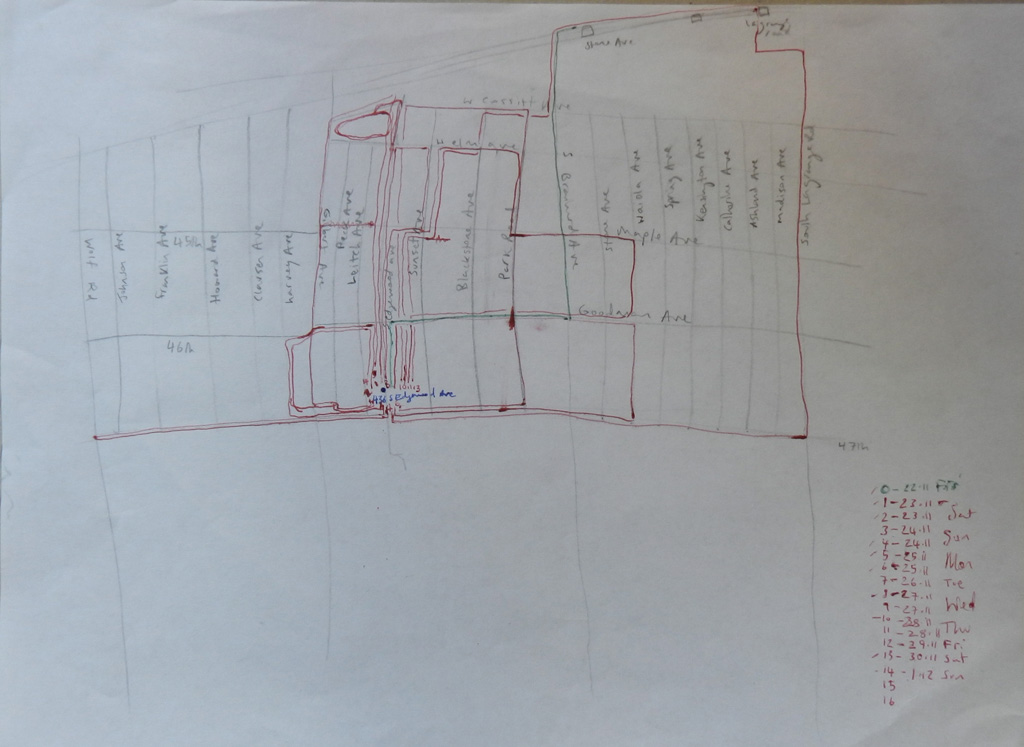 Stone Ave
W Cossitt Ave
Elm ave
Wolf Rd
Johnson Ave
Franklin Ave
45th
Howard Ave
Clausen Ave
harvey Ave
Gilbert Ave
Park Ave
Leitch Ave
Edgewood ave
Sunset Ave
Blackstone Ave
Park Road
S Brainard Ave
Stone Ave
Waiola Ave
Spring Ave
Kensington Ave
Catherine Ave
Ashland Ave
madison Ave
South Lagrange Rd
Goodman Ave
46th
436 S Edgewood Ave
47th
0 - 22.11 Fri
1 - 23.11
2 - 23.11 Sat
3 - 24.11
4 - 24.11 Sun
5 - 25.11
6 - 25.11 Mon
7 - 26.11 Tue
8 - 27.11
9 - 27.11 Wed
10 - 28.11
11 - 28.11 Thu
12 - 29.11 Fri
13 - 30.11 Sat
14 - 1.12 Sun
15
16